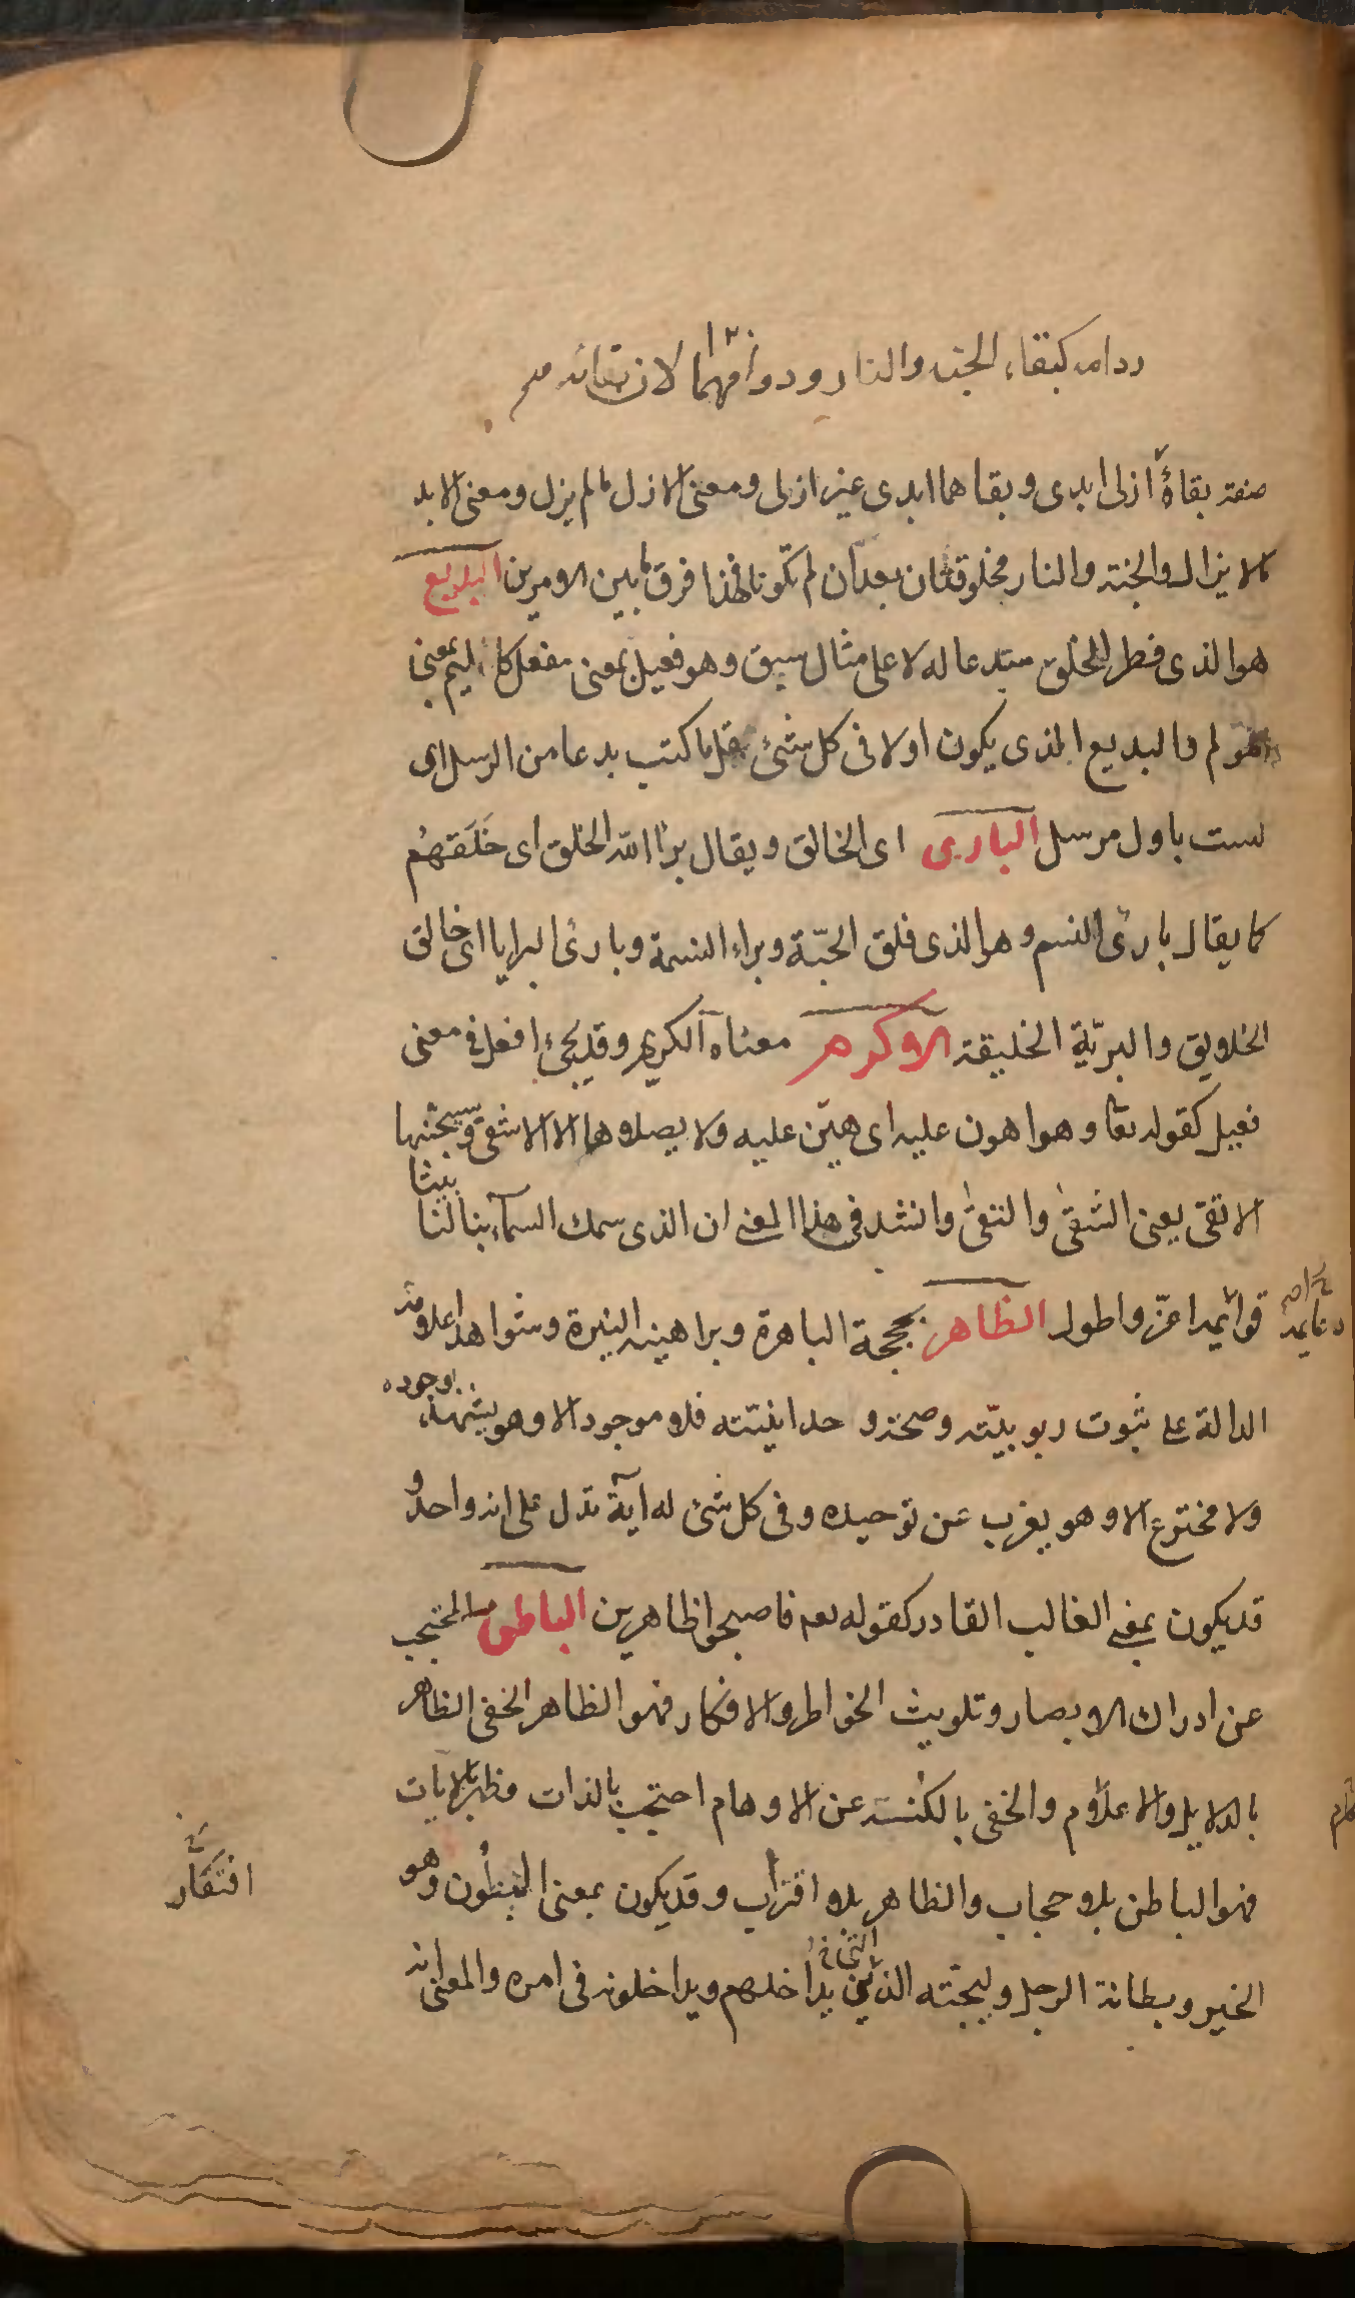 ودامه كبقاء الجنه والنار ودوامهما لان بقائه مع
صفته بقاؤه ازلى ابدى وبقاهما ابدى غير ازلى ومعنى الازل ما لم يزل ومعنى الابد
ما لا يزال والجنة والنار مخلوقتان بعد ان لم تكونا فهذا فرق ما بين الامرين البديع
هو الذى فطر الخلق مبتدعا له لا على مثال سبق وهو فعيل بمعنى مفعل كاليم بمعنى
مولم والبديع الذى يكون اولا فى كل شئ قل ما كنت بدعا من الرسل اى
لست باول مرسل البارى اى الخالق ويقال برا الله الخلق اى خَلَقَهُم
كما يقال بارئ النسم وهو الذى فلق الحبّة وبراء النسمة وبارئ البرايا اى خالق
الخلايق والبريّة الخليقة الاكرم معناه الكريم وقد يجئ افعل فى معنى
فعيل كقوله تعا وهو اهون عليه اى هيّن عليه ولا يصلاها الا الاشقى وسيجنبها
الاتقى يعنى الشقى والتقى وانشد فى هذا المعنى ان الذى سمك السمآء بنا لنا بيتا
قوائمه اعزّ واطول الظاهر بحججه الباهرة وبراهينه النيرة وشواهد اعلامه
دعايمه
الدالة على ثبوت ربوبيّته وصحة وحدانيّته فلا موجود الا وهو يشهد بوجوده
ولا مخترع الا وهو يعرب عن توحيده وفى كل شئ له آية تدل على انه واحد و
قد يكون بمعنى الغالب القادر كقوله تعم فاصبحوا ظاهرين الباطن المحتجب
عن ادراك الابصار وتلويث الخواطر والافكار فهو الظاهر الخفى الظاهر
بالدلايل والاعلام والخفى بالكُنه عن الاوهام احتجب بالذات وظهر بالايات
فهو الباطن بلا حجاب والظاهر بلا اقتراب وقد يكون بمعنى البطُون وهو
افتقار
الخبير وبطانة الرجل وليجته الذين يداخلهم ويداخلونه فى امره والمعنى انه